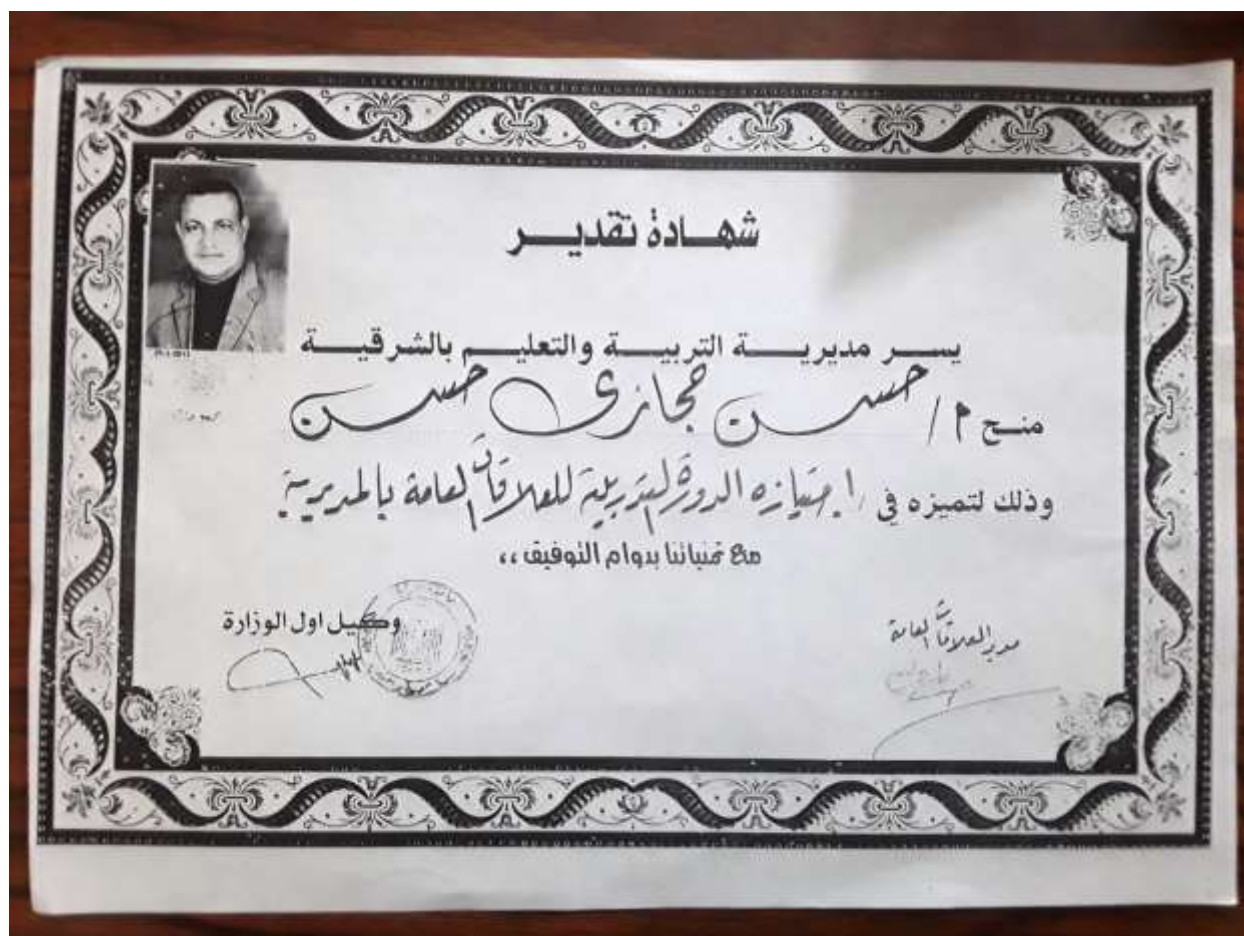 شهادة تقدير
يسر مديرية التربية والتعليم بالشرقية
منح م / حسن حجازى حسن
وذلك لتميزه في اجتيازه الدورة التدريبية للعلاقات العامة بالمديرية
مع تمنياتنا بدوام التوفيق ،،
مدير العلاقات العامة
وكيل اول الوزارة